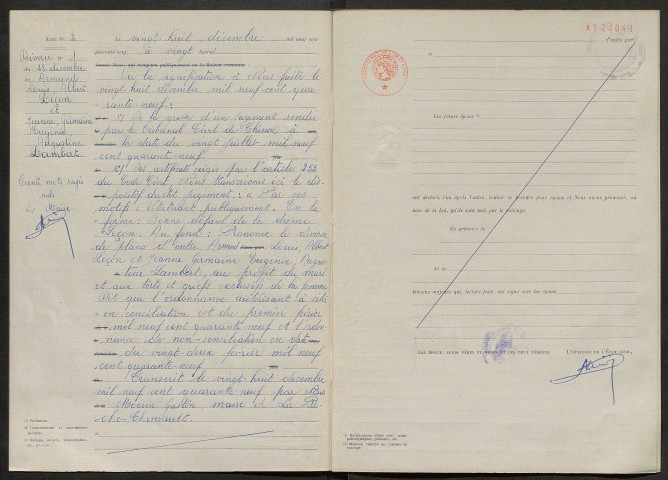 Acte N° 2
Divorce N° 1
du 28 décembre
Armand
Louis, Albert
Leçon
et
Jeanne, Germaine
Eugénie,
Augustine
Lambert
Trente mots rayés
nuls
Le Maire
Le vingt huit décembre mil neuf cent
quarante neuf, à vingt heures
Vu la signification à Nous faite le
vingt huit décembre mil neuf cent qua
rante neuf :
1°/ De la grosse d'un jugement rendu
par le Tribunal Civil de Chinon à
la date du vingt juillet mil neuf
cent quarante neuf
2°/ Des certificats exigés par l'article 252
du Code Civil, Nous transcrivons ici le dis
positif du dit jugement : « Par ces
motifs : Statuant publiquement. En la
forme : Donne défaut de la dame
Leçon. Au fond : Prononce le divorce
de plano d'entre Armand Louis, Albert
Leçon et Jeanne Germaine Eugénie Augus
tine Lambert, au profit du mari
et aux torts et griefs exclusifs de la femme
Dit que l'ordonnance autorisant à citer
en conciliation est du premier février
mil neuf cent quarante neuf et l'ordon
nance de non-conciliation en date
du vingt deux février mil neuf
cent quarante-neuf
Transcrit le vingt-huit décembre
mil neuf cent quarante neuf par Nous
Gaston, maire de La Ro
che Clermault.
d'autre part
Les futurs époux
ont déclaré, l'un après l'autre, vouloir se prendre pour époux et Nous avons prononcé, au
nom de la Loi, qu'ils sont unis par le mariage.
En présence de
Et de
témoins majeurs qui, lecture faite, ont signé avec les époux
Les époux, leurs pères et mères et les deux témoins.
L'Officier de l'État civil,